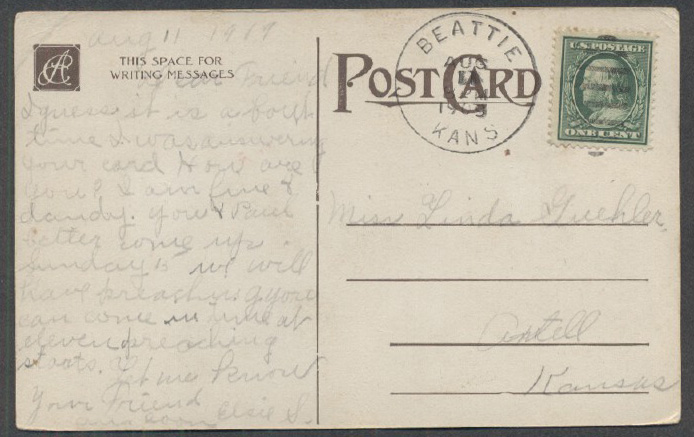 Aug 11 1909
THIS SPACE FOR
WRITING MESSAGES
Dear Friend
I guess it is about
time I was answering
your card How are
you? I am fine &
dandy. You & Paul
better come up
Sunday we will
have preaching you
can come in time at
eleven preaching
starts. Let me know
Your Friend
Elsie S.
POST CARD
BEATTIE
AUG
KANS
U.S. POSTAGE
ONE CENT
Miss Linda
Axtell
Kansas